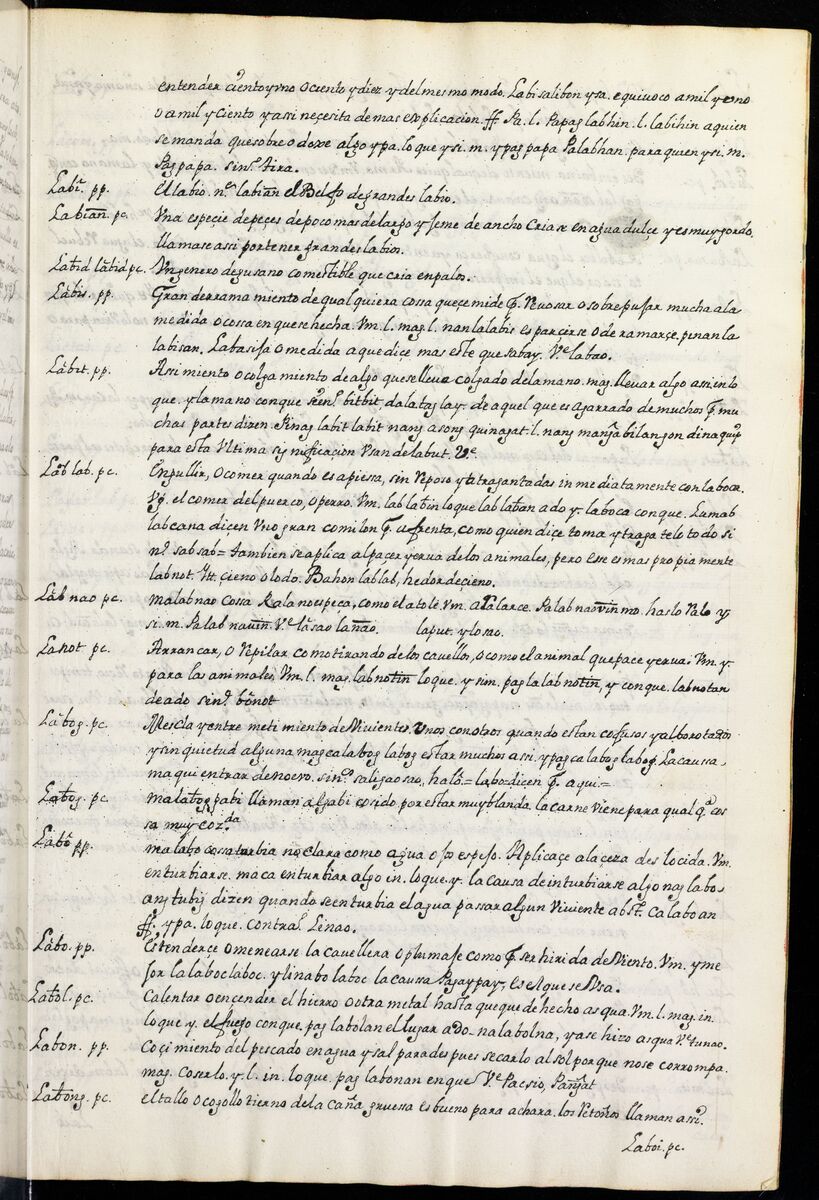 entender çiento y vno o ciento y diez y del mesmo modo. Labi sa libon ysa. equiuoco a mil y vno
o a mil y ciento y assi necesita de mas explicacion. ff. Pa. l. Papag labhin. l. labihin a quien
se manda que sobre o dexe algo y pa. lo que y si. m. y pag papa Palabhan. para quien y si. m.
Pag papa. sin.º tira.
Labi. pp. El labio. n.º labian el Belfo de grandes labio.
Labian. pc. Vna espeçie de peçes de poco mas del largo y jeme de ancho Criase en agua dulçe y es muy gordo.
llamase assi por tener grandes labios.
Labid labid pc. Vn genero de gusano comestible que cria en palos.
Labis. pp. Gran derramamiento de qual quiera cossa que çe mide q. Reuosar o sobrepujar mucha a la
medida o cossa en que se hecha. Vm. l. mag. l. nanlalabis esparcirse o deramarçe. pinanla
labisan. Labasisa o medida a que diçe mas este que sabay. Ve labao.
Labit. pp. Assimiento o colgamiento de algo que se lleua colgado de la mano. mag. lleuar algo assi in lo
que. y la mano con que sin.º bitbit. dalatag lay. de aquel que es agarrado de muchos q. mu
chas partes dizen. Pinag labit labit nang asong quinagat. l. nang manga bilangon dinaquip
para esta Vltima significacion Vsan de labut. Ve.
Lab lab. pc. Engullir, o comer quando es apiessa, sin Reposo y a tragantadas inmediatamente con la boca.
Vg. el comer del puerco, o perro. Vm. lab labin lo que lab laban ado y la boca con que. Lumab
lab cana diçen Vno gran comilon q. afrenta, como quien diçe toma y tragatelo todo si
n.º sab sab = tambien se aplica al paçer yerua de los animales, pero ese es mas propiamente
labnot. Itt. çieno o lodo. Bahon lablab, hedor de çieno.
Lab nao pc. malabnao cossa Rala no espeça, como el atole. Vm. a Ralarce. Palab naovin mo. haslo Ralo y
si. m. Palab nauin. Ve lasao lanao. laput. y losao.
Lanot. pc. Arrancar, o Repilar como tirando de los cauellos, o como el animal que pace yerua. Vm. y
para las animales. Vm. l. mag. labnotin lo que. y sim. pag lalab notin, y con que. labnotan
de ado sin.º bonot
Labog. pc. Mescla y entremetimiento de Viuientes. Vnos con otros quando estan cofusos y alborotados
y sin quietud alguna mag calabog labog estar muchos assi. y pag ca labog labog. La caussa.
maqui entrar de nouo. sin.º saligao sao, halo = labo = dicen q. a qui =
Labog. pc. malabog gabi llaman al gabi cosido por estar muy blanda. la carne viene para qual q.ª cos
sa muy coz.da
Labo pp. malabo cossa turbia no clara como agua o sso espeso. Aplicaçe a la çeza deslocida. Vm.
enturbiarse. maca enturbiar algo in. lo que. y. la causa de inturbiarse algo nag labo
ang tubig dizen quando se enturbia el agua passar algun Viuiente abst. Calaboan
ff. y pa. lo que. Contra.º Linao.
Labo. pp. Estenderçe o menearse la cauellera o plumaje como q. ser hirida de Viento. Vm. y me
jor lalaboc laboc. y linabo laboc la caussa Pagaypay, es el que se Vsa.
Labol. pc. Calentar o ençender el hierro o otra metal hasta que quede hecho asqua. Vm. l. mag. in.
lo que y. el fuego con que. pag labolan el lugar ado. nalabolna, ya se hizo asqua Ve tunao.
Labon. pp. Coçimiento del pescado en agua y sal para despues secarlo al sol porque no se corrompa.
mag. Coserlo. y. l. in. lo que. pag labonan en que Ve Pacsio, Pangat
Labong. pc. el tallo o cogollo tierno de la caña gruessa es bueno para achara. los Retoños llaman assi.
Laboi. pc.